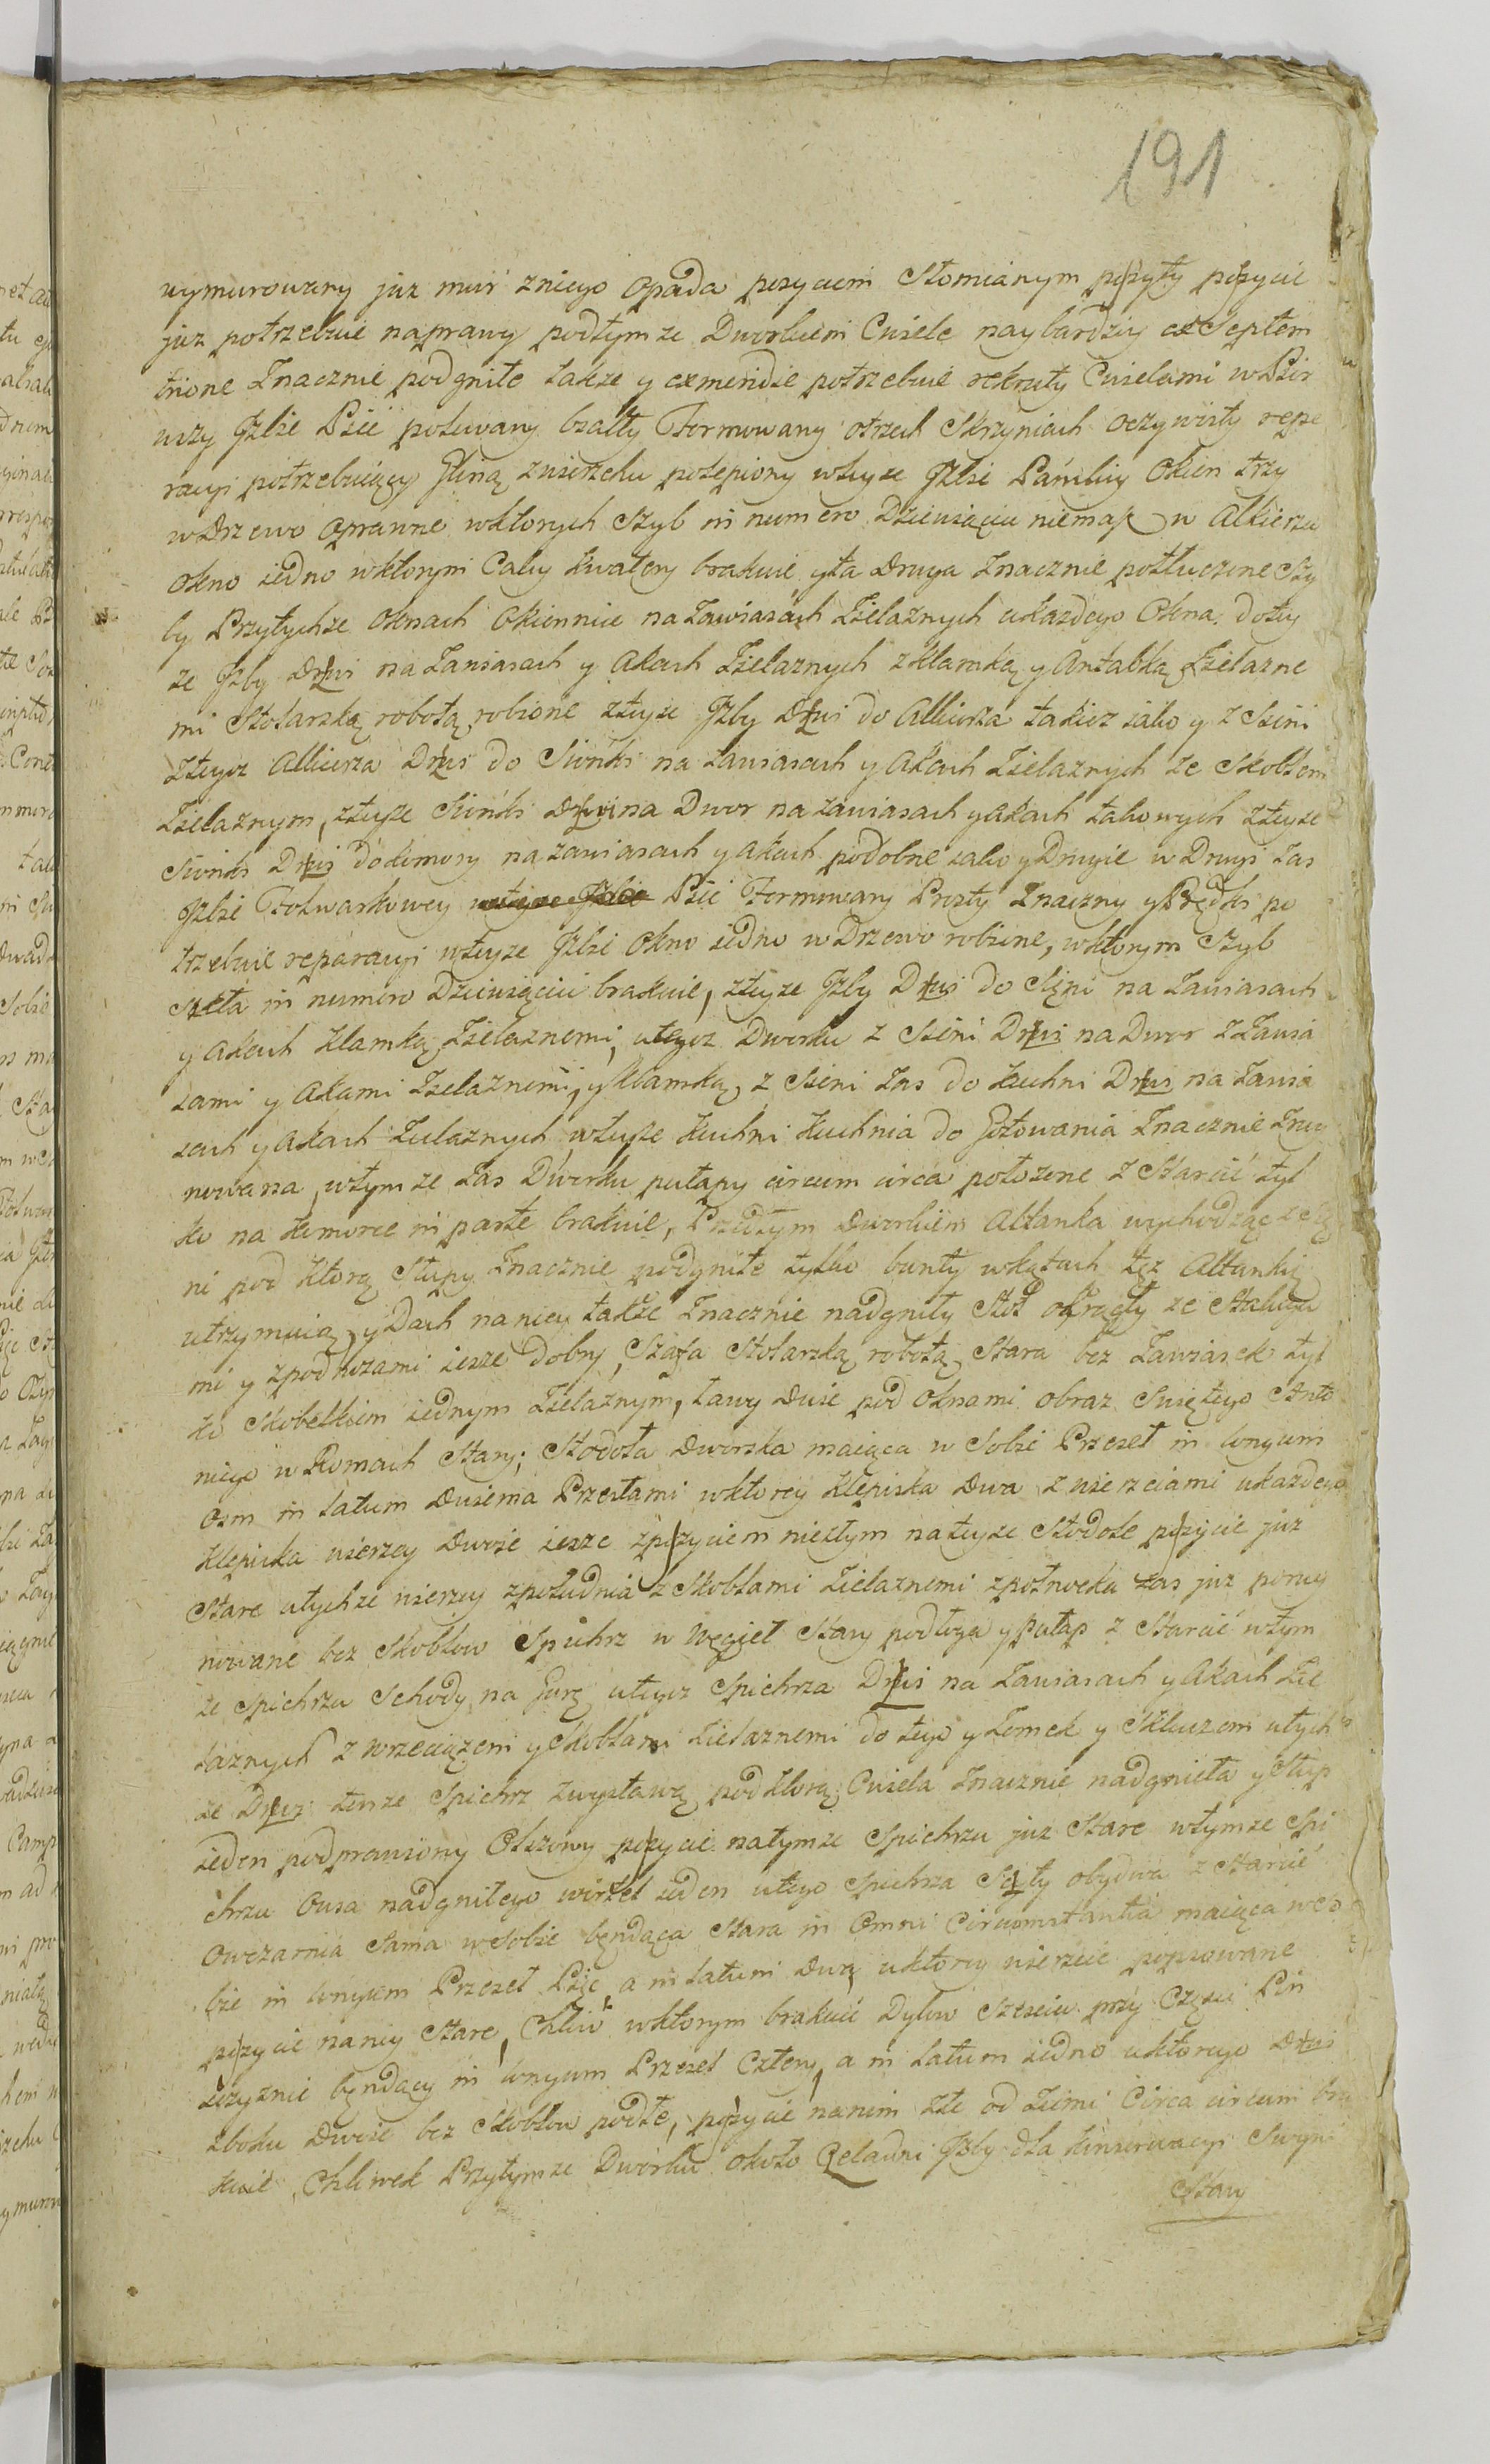 191
wymurowany juz mur zniego opada poszyciem Słomianym poszyty poszycie
juz potrzebuie naprawy podtymze Dworkiem Cwiele naybardziy ex Septem
trione Znacznie podgniłe takze y ex meridie potrzebuie rekruty Cwielami w Pier
wszy Jzbie Piec polewany biały Formowany o trzech Skrzyniach oczywisty repe
racyi potrzebuiący Gliną zwierzchu polepiony wteyze Jzbie Pańskiy Okien trzy
w Drzewo oprawne wktorych Szyb in numero Dziewięciu niemasz w Alkierzu
Okno iedno wktorym Cały kwatery brakuie y ta Druga Znacznie potłuczone Szy
by Przytychze Oknach Okiennice na Zawiasach Zielaznych ukazdego Okna, do tey
ze Jzby Drzwi na Zawiasach y Akach Zielaznych z klamką y Antabką Zielazne
mi Stolarską robotą robione z teyze Jzby Drzwi do Alkierza takiez iako y z Sieni
z teyz Alkierza Drzwi do Sionki na zawiasach y Akach Zielaznych ze Skoblem
Zielaznym, z teyze Sionki Drzwi na Dwor na zawiasach y Akach takowych z teyze
Sionki Drzwi do komory na zawiasach y Akach podobne iako y Drugie w Drugi zas
Jzbie Folwarkowey wteyze Jzbie Piec Formowany Prosty Znaczny y Prędki po
trzebuie reperacyi wteyze Jzbie Okno iedno w Drzewo robione, wktorym Szyb
Szkła in numero Dziewięciu brakuie, z teyze Jzby Drzwi do Sięni na Zawiasach
y Akach klamką Zielaznemi, u tegoz Dworku z Sieni Drzwi na Dwor z Zawia
sami y Akami Zielaznemi, y klamką, z Sieni zas do kuchni Drzwi na Zawia
sach y Akach Zielaznych, wteyze kuchni kuchnia do Gotowania Znacznie Zruy
nowana, wtymze zas Dworku pułapy circum circa połozone z Starcic tyl
ko na komorce in parte brakuie, Przedtym Dworkiem Altanka wychodząc z Się
ni pod ktorą Słupy Znacznie podgniłe tylko bunty wkątach tęz Altankię
utrzymuią, y Dach na niey takze Znacznie nadgniły Stoł okrągły ze Staluga
mi y zpodnozami iesze dobry, Szafa Stolarską robotą Stara bez Zawiasek tyl
ko Skobelkiem iednym Zielaznym, Ławy Dwie pod Oknami obraz Swiętego Anto
niego w Ramach Stary; Stodoła Dworska maiąca w Sobie Przeseł in longum
Osm in latum Dwiema Przesłami wktorey klepiska Dwa z wierzeiami ukazdego
klepiska wierzey Dwoie iesze z poszyciem niezłym na teyze Stodole poszycie juz
Stare utychze wierzey zpołudnia z Skoblami Zielaznemi zpołnocka zas juz poruy
nowane bez Skoblow Spichrz w Węgieł Stary podłoga y pułap z Starcic wtym
ze Spichrzu Schody na Gorę utegoz Spichrza Drzwi na Zawiasach y Akach Zie
laznych z wrzeciązem y Skoblami Zielaznemi do tego y Zomek y Skluczem utych
ze Drzwi tenze Spichrz zwystawą pod ktorą Cwiela Znacznie nadgnieła y Słup
ieden podprawiony Olszowy poszycie natymze Spichrzu juz Stare wtymze Spi
chrzu Owsa nadgniłego wirtel ieden utego Spichrza Szczyty obydwa z Starcic
Owczarnia Sama w Sobie będąca Stara in Omni Circumstantia maiąca w So
bie in longum Przeseł Pięc, a in latum Dwa uktorey wierzeie poprawiane
poszycie naniey Stare, Chliw wktorym brakuie Dylow Szesciu przy Częsci Pań
szczyznie będący in longum Przeseł Cztery, a in latum iedno uktorego Drzwi
zboku Dwoie bez Skoblow podłe, poszycie nanim złe od Ziemi Circa circum bra
kuie, Chliwek Przytymze Dworku około Czeladni Jzby dla konserwacyi Swyni
Stary